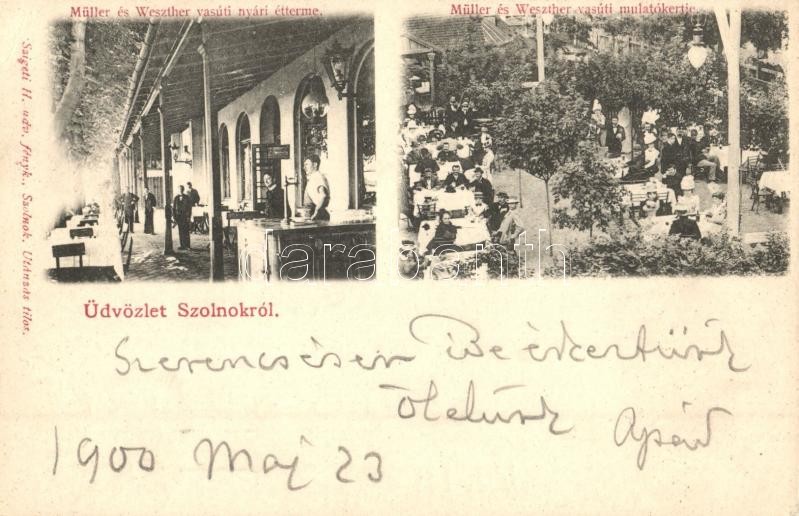 Müller és Weszther vasúti nyári étterme.
Müller és Weszther vasúti mulatókertje.
Szigeti H. udv. fényk., Szolnok. Utánzás tilos.
darabanth
Üdvözlet Szolnokról.
Szerencsésen Be érkeztünk
ölelünk
1900 Maj 23